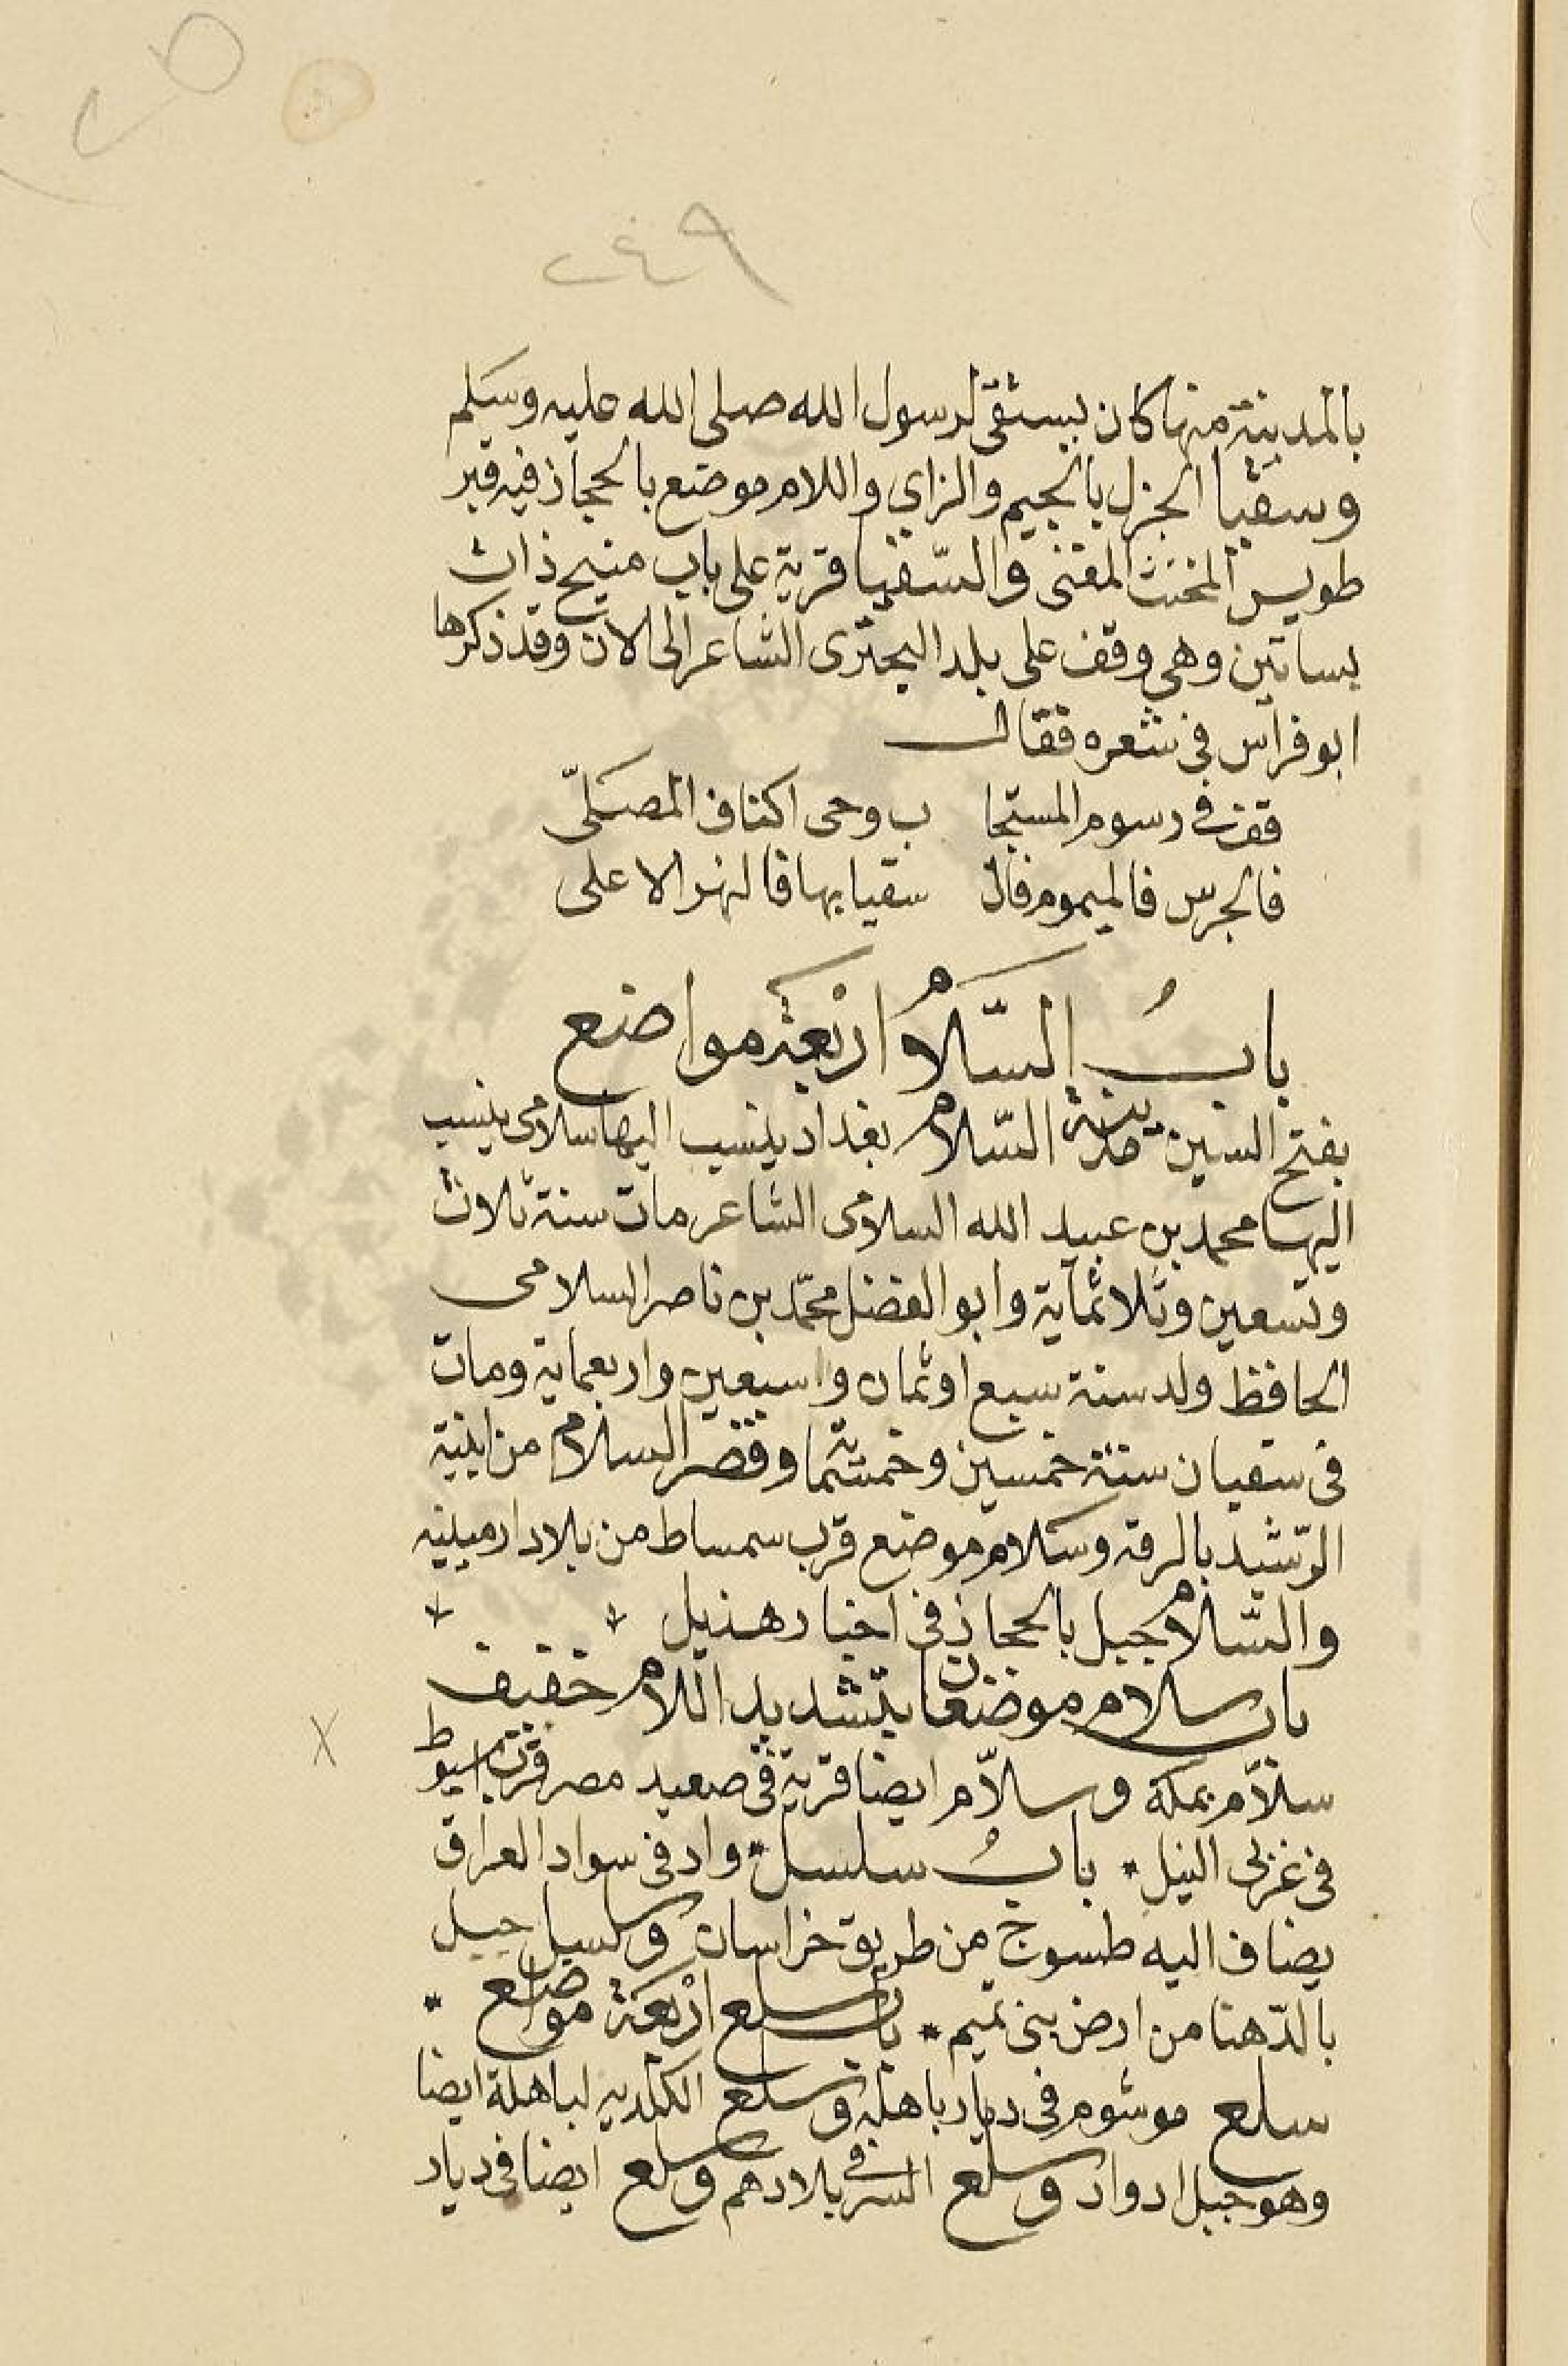 ٢٤٩
بالمدينة منها كان يستقى لرسول الله صلى الله عليه وسلم
وسقيا الجزل بالجيم والزاي واللام موضع بالحجاز فيه قبر
طويس المخنث المغنى والسقيا قرية على باب منبج ذات
بساتين وهى وقف على بلد البحترى الشاعر الى الان وقد ذكرها
ابو فراس فى شعره فقال
قف فى رسوم المستجا ب وحى اكناف المصلّى
فالجرس فالميموم فال سقيا بها فالنهر الاعلى
بابُ السَّلَام ارْبَعَة مواضع
بفتح السين مدينة السّلام بغداد ينسب اليها سلامى ينسب
اليها محمد بن عبيد الله السلامى الشاعر مات سنة ثلاث
وتسعين وثلاثماية وابو الفضل محمّد بن ناصر السلامى
الحافظ ولد سنة سبع اوثمان واسبعين واربعماية ومات
فى سفيان سنة خمسين وخمسماية وقصر السلام من ابنية
الرّشيد بالرقه وسلام موضع قرب سمساط من بلاد ارمينيه
والسّلام جبل بالحجاز فى اخبار هذيل
باب سلام موضعان بتشديد اللام خفيف
سلاّم بمكة وسلاّم ايضا قرية فى صعيد مصر قرب اسيوط
فى غربى النيل * بابُ سلسل * واد فى سواد العراق
يضاف اليه طسوج من طريق خراسان وسلسل جبل
بالدّهنا من ارض بنى تميم * باب سلع ارْبَعَة مواضع *
سلع موشوم فى ديار باهلة وسلع الكلديه لباهلة ايضا
وهو جبل او واد وسلع السر فى بلادهم وسلع ايضا فى ديار